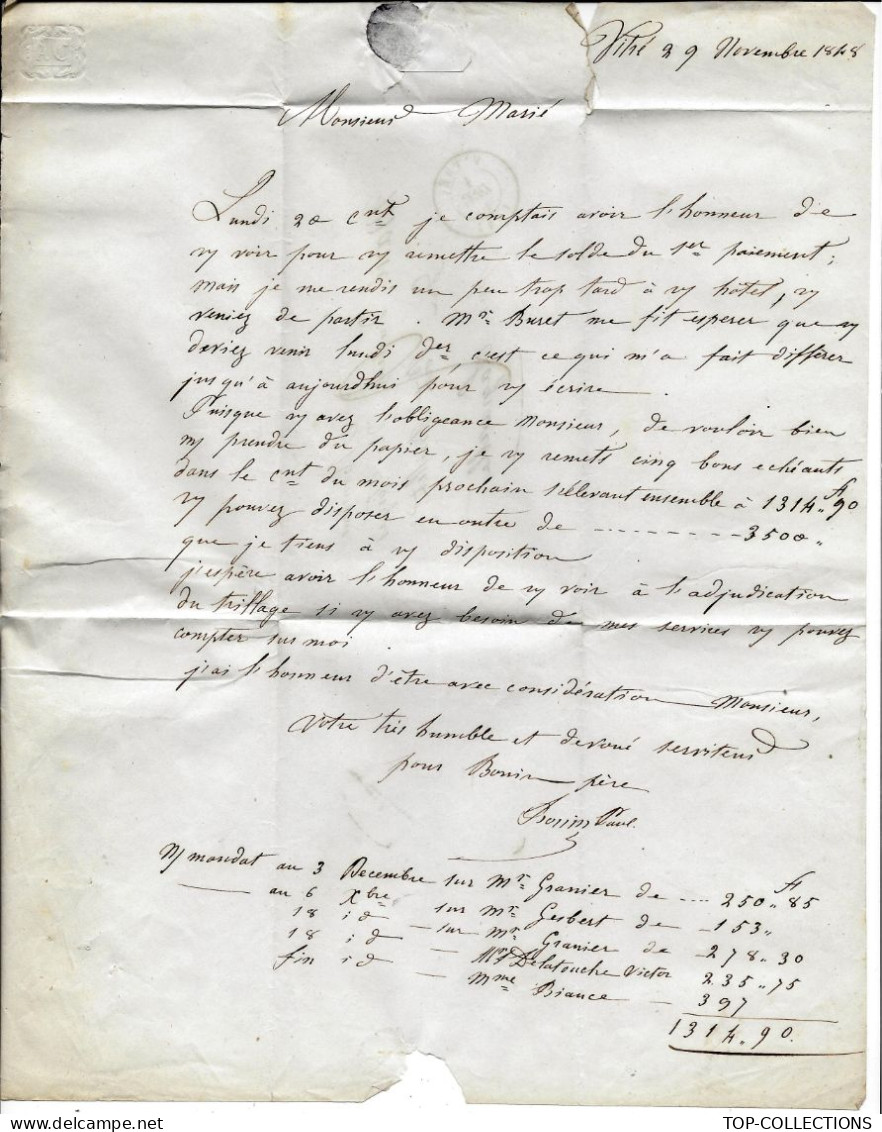 Vitré 29 Novembre 1848
Monsieur Marié
Lundi 20 cnt je comptais avoir l'honneur de
vs voir pour vs remettre le solde du 1er paiement;
mais je me rendis un peu trop tard à vs hôtel, vs
veniez de partir. Mr Buret me fit esperer que vs
deviez venir lundi der c'est ce qui m'a fait différer
jusqu'à aujourdhui pour vs écrire.
Puisque vs avez l'obligeance Monsieur, de vouloir bien
ms prendre du papier, je vs remets cinq bons echéants
dans le cnt du mois prochain s'ellevant ensemble à 1314 " 90
f
Vs pouvez disposer en outre de ......... 3500 "
que je tiens à vs disposition
j'espère avoir l'honneur de vs voir à l'adjudication
du tillage si vs avez besoin de mes services vs pouvez
compter sur moi.
j'ai l'honneur d'être avec considération Monsieur,
Votre très humble et devoué serviteur
pour Bonin père
Bonin Paul.
f
N/ mandat au 3 Decembre sur Mr Granier de .... 250 " 85
au 6 Xbre sur Mr Gesbert de 153 "
18 id sur Mr Granier de 278 " 30
18 id Mr Delatouche Victor 235 " 75
fin id Mme Biance 397
1314 " 90.
TOP-COLLECTIONS